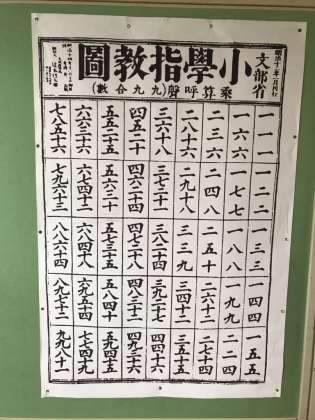 文部省
小學指教圖
乘算呼聲(九九合數)
一一一
一二二
一三三
一四四
一五五
一六六
一七七
一八八
一九九
二二四
二三六
二四八
二五十
二六十二
二七十四
二八十六
二九十八
三三九
三四十二
三五十五
三六十八
三七二十一
三八二十四
三九二十七
四四十六
四五二十
四六二十四
四七二十八
四八三十二
四九三十六
五五二十五
五六三十
五七三十五
五八四十
五九四十五
六六三十六
六七四十二
六八四十八
六九五十四
七七四十九
七八五十六
七九六十三
八八六十四
八九七十二
九九八十一